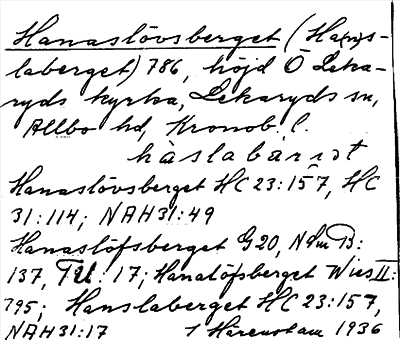 Hanaslövsberget (Ha(n)s-
laberget) 786, höjd Ö Leka-
ryds kyrka, Lekaryds sn,
Allbo hd, Kronob. l.
Hanaslövsberget HC 23:157, HC
31:114; NAH 31:49
Hanaslöfsberget G20, NdmB:
137, TU: 17; Hanalöfsberget Wies II:
795; Hanslaberget HC 23:157,
NAH 31:17 1936